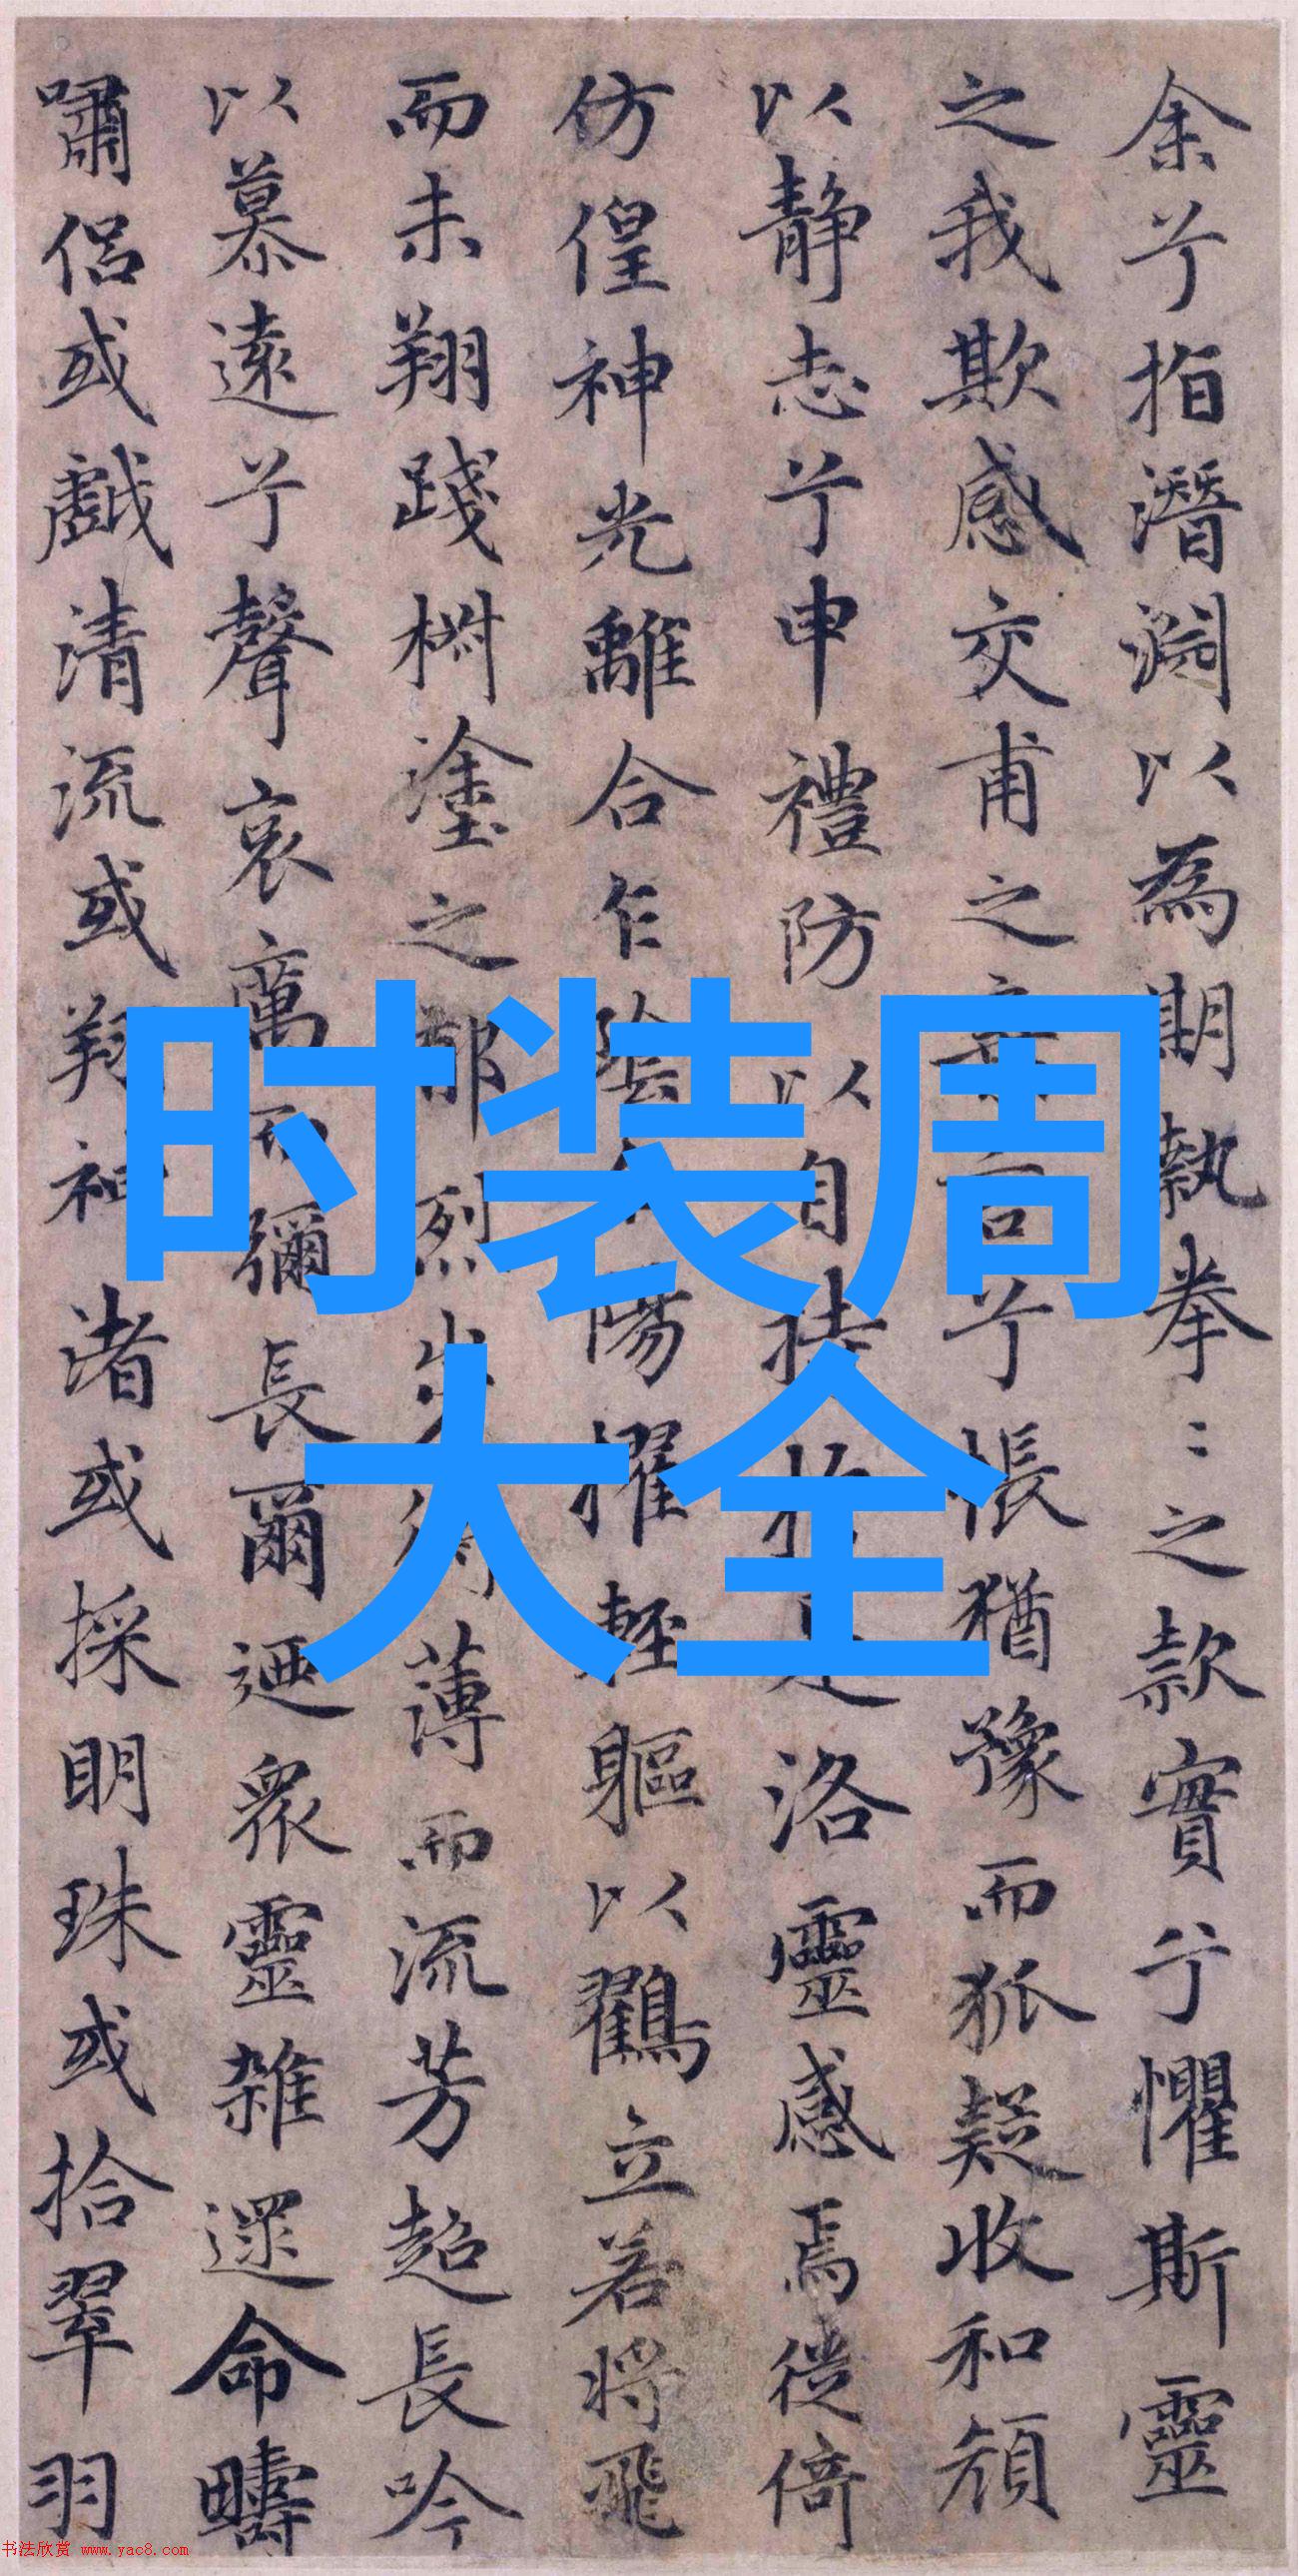 余兮指潛淵以為期執拳〻之款實兮懼斯靈
之我欺感交甫之言兮悵猶豫而狐疑收和顏
以靜志兮申禮防以自持於是洛靈感焉徙倚
仿偟神光離合乍陰陽擢輕軀以鶴立若將飛
而未翔踐椒塗之郁烈步薄而流芳超長吟
以慕遠兮聲哀厲而彌長爾迺眾靈雜遝命疇
嘯侶或戲清流或翔神渚或採明珠或拾翠羽
时装周
大全
书法欣赏 www.yac8.com